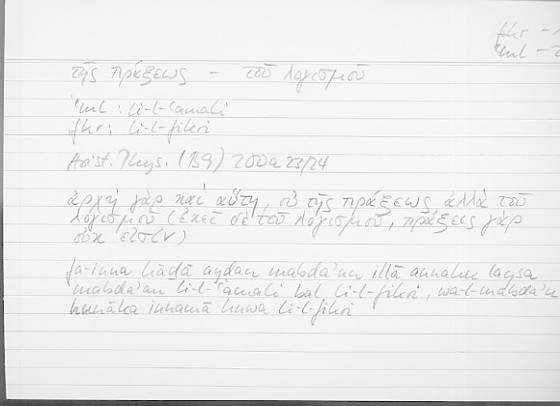 fkr –
ʿml –
τῆς πράξεως – τοῦ λογισμοῦ
ʿml : li-l-ʿamali
fkr : li-l-fikri
Arist. Phys. (B9) 200a23/24
ἀρχὴ γὰρ καὶ αὕτη, οὐ τῆς πράξεως ἀλλὰ τοῦ
λογισμοῦ (ἐκεῖ δὲ τοῦ λογισμοῦ, πράξεις γὰρ
οὐκ εἰσίν)
fa-inna hāḏā ayḍan mabdaʾun illā annahu laysa
mabdaʾan li-l-ʿamali bal li-l-fikri, wa-l-mabdaʾu
hunāka innamā huwa li-l-fikri